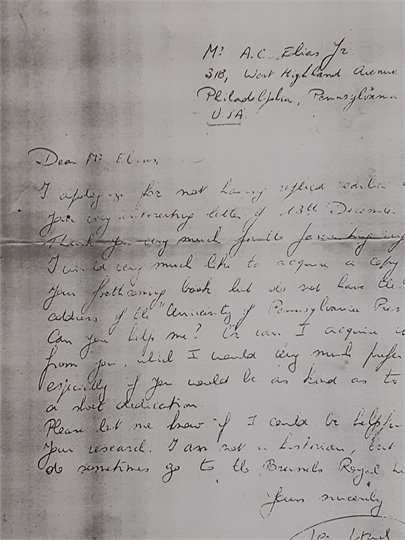 Mr A.C. Elias Jr.
318, West Highland Avenue
Philadelphia, Pennsylvania
USA
Dear Mr Elias,
I apologize for not having replied
your very interesting letter of 13th December
Thank you very much for
I would very much like to acquire a copy
your forthcoming book but do not have the
address of the "University of Pennsylvania Press
Can you help me? Or can I acquire it
from you, which I would very much prefer
especially if you would be as kind as to
a short dedication.
Please let me know if I could be helpful
your research. I am not a historian, but
do sometimes go to the Brussels Royal
Yours sincerely